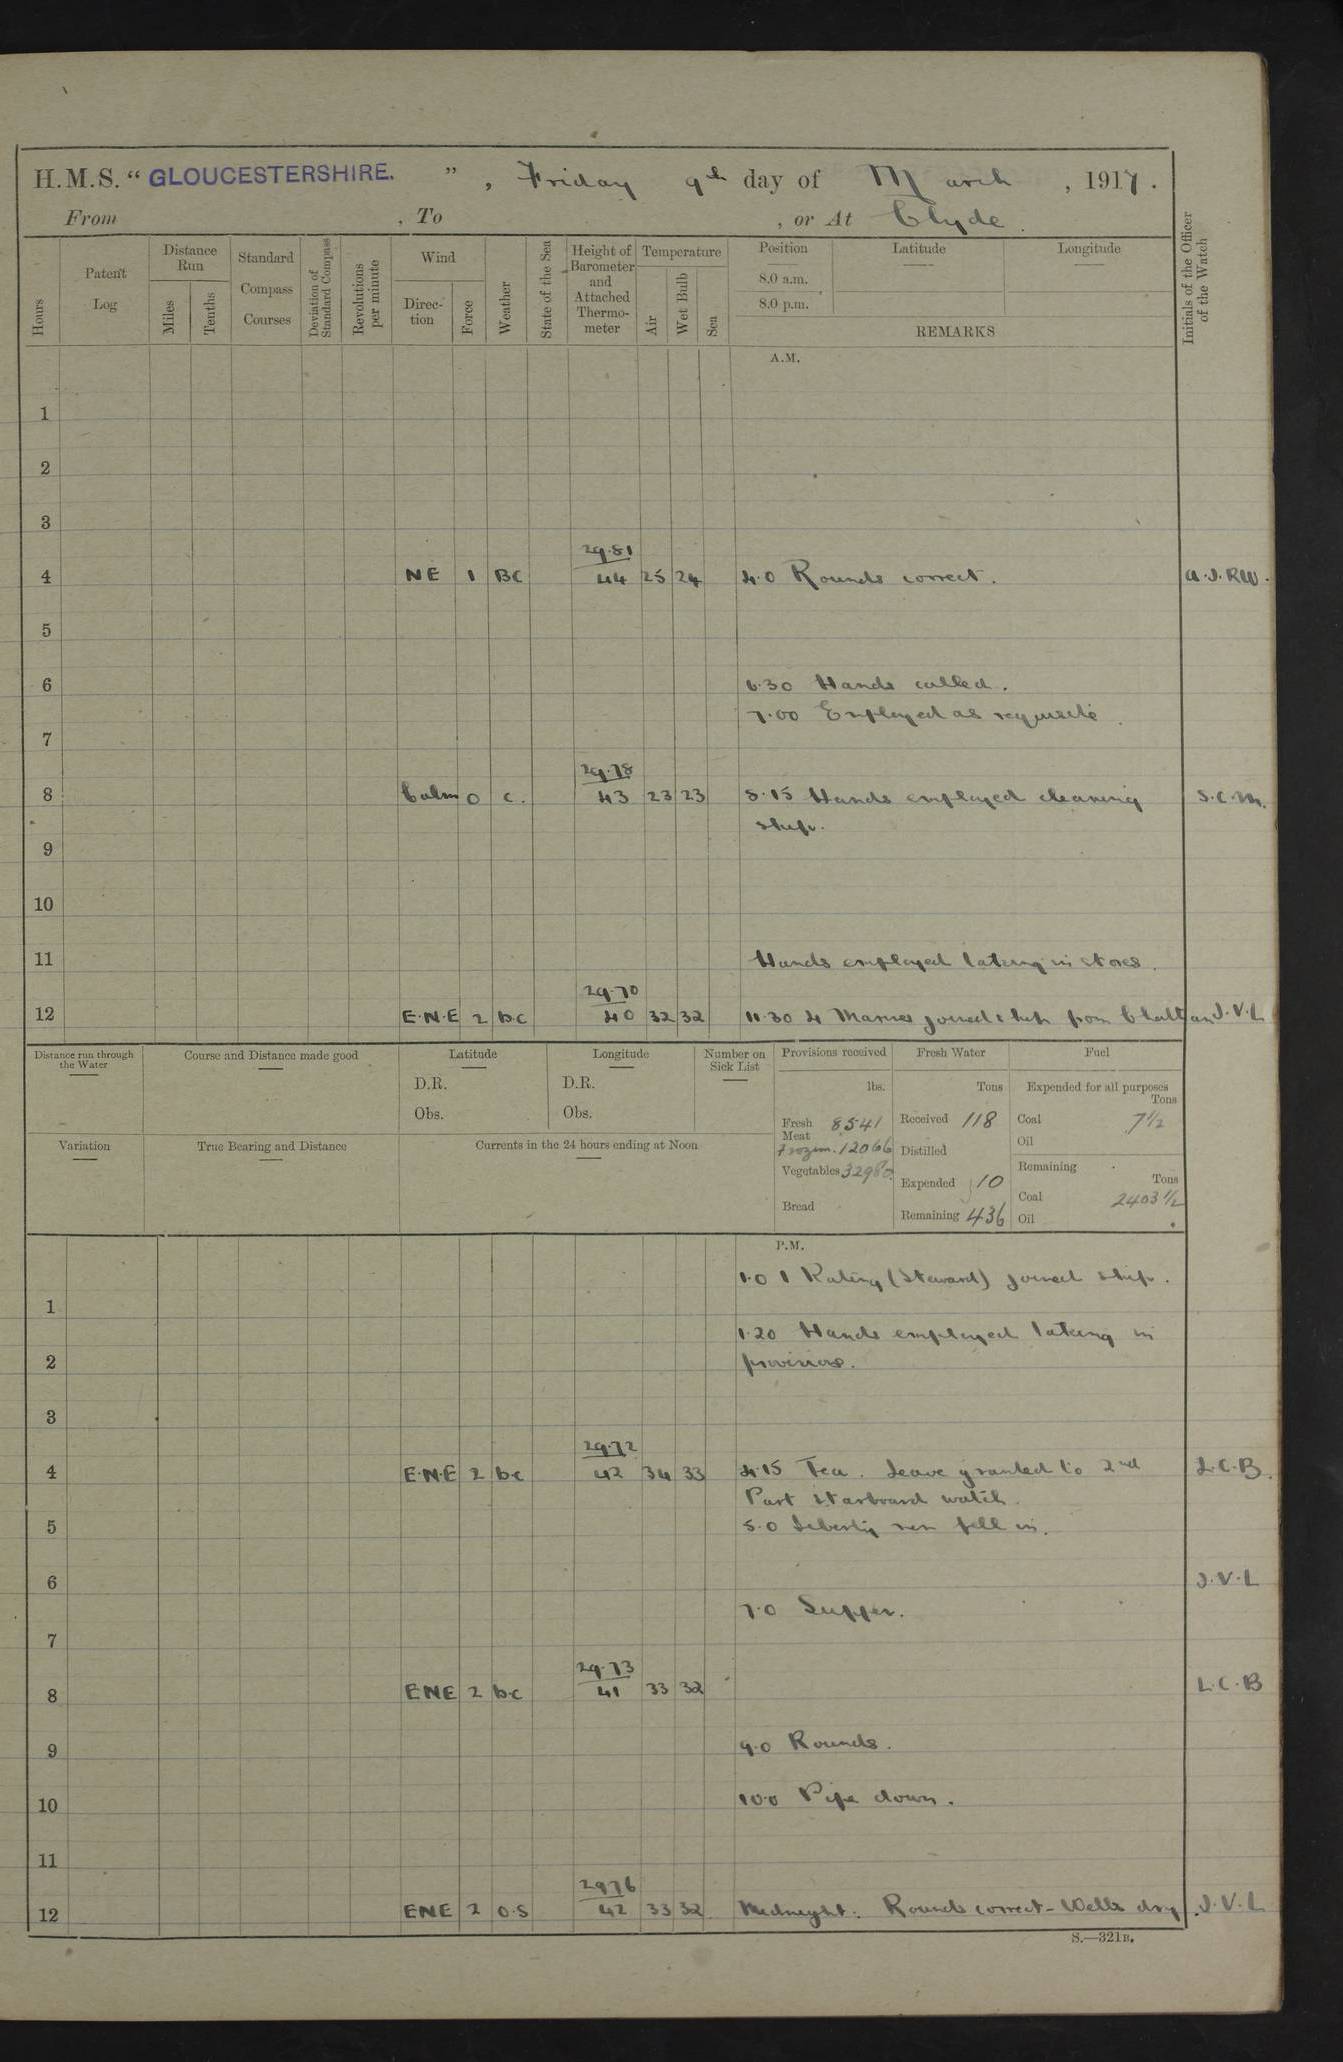 H.M.S. “ GLOUCESTERSHIRE. ” , Friday 9th day of March , 1917 .
From , To , or At Clyde .
Hours
Patent Log
Distance Run
Miles
Tenths
Standard Compass Courses
Deviation of Standard Compass
Revolutions per minute
Wind
Direction
Force
Weather
State of the Sea
Height of Barometer and Attached Thermometer
Temperature
Air
Wet Bulb
Sea
Position
8.0 a.m.
8.0 p.m.
Latitude
Longitude
REMARKS
Initials of the Officer of the Watch
A.M.
1
2
3
29.81
4 NE 1 BC 44 25 24 4.0 Rounds correct. A.J.RW.
5
6 6.30 Hands called.
7.00 Employed as requisite.
7
29.78
8 Calm 0 c. 43 23 23 8.15 Hands employed cleaning S.C.M.
ship.
9
10
11 Hands employed taking in stores.
29.70
12 E.N.E 2 b.c 40 32 32 11.30 4 Marines joined ship from Chattan J.V.L
Distance run through the Water
Course and Distance made good
Latitude
D.R.
Obs.
Longitude
D.R.
Obs.
Number on Sick List
Provisions received
lbs.
Fresh Meat 8541
Frozen. 12066
Vegetables 32980
Bread
Fresh Water
Tons
Received 118
Distilled
Expended 10
Remaining 436
Fuel
Expended for all purposes
Tons
Coal 7 1/2
Oil
Remaining
Tons
Coal 2403 1/2
Oil
Variation
True Bearing and Distance
Currents in the 24 hours ending at Noon
P.M.
1.0 1 Rating (Steward) joined ship.
1
1.20 Hands employed taking in
2 provisions.
3
29.72
4 E.N.E 2 b.c 42 34 33 4.15 Tea. Leave granted to 2nd L.C.B.
Part Starboard watch.
5 5.0 Liberty men fell in.
6 J.V.L
7.0 Supper.
7
29.73
8 ENE 2 b.c 41 33 32 L.C.B
9 9.0 Rounds.
10 10.0 Pipe down.
11
29.76
12 ENE 2 O.S 42 33 32 Midnight: Rounds correct - Wells dry. J.V.L
S.—321B.